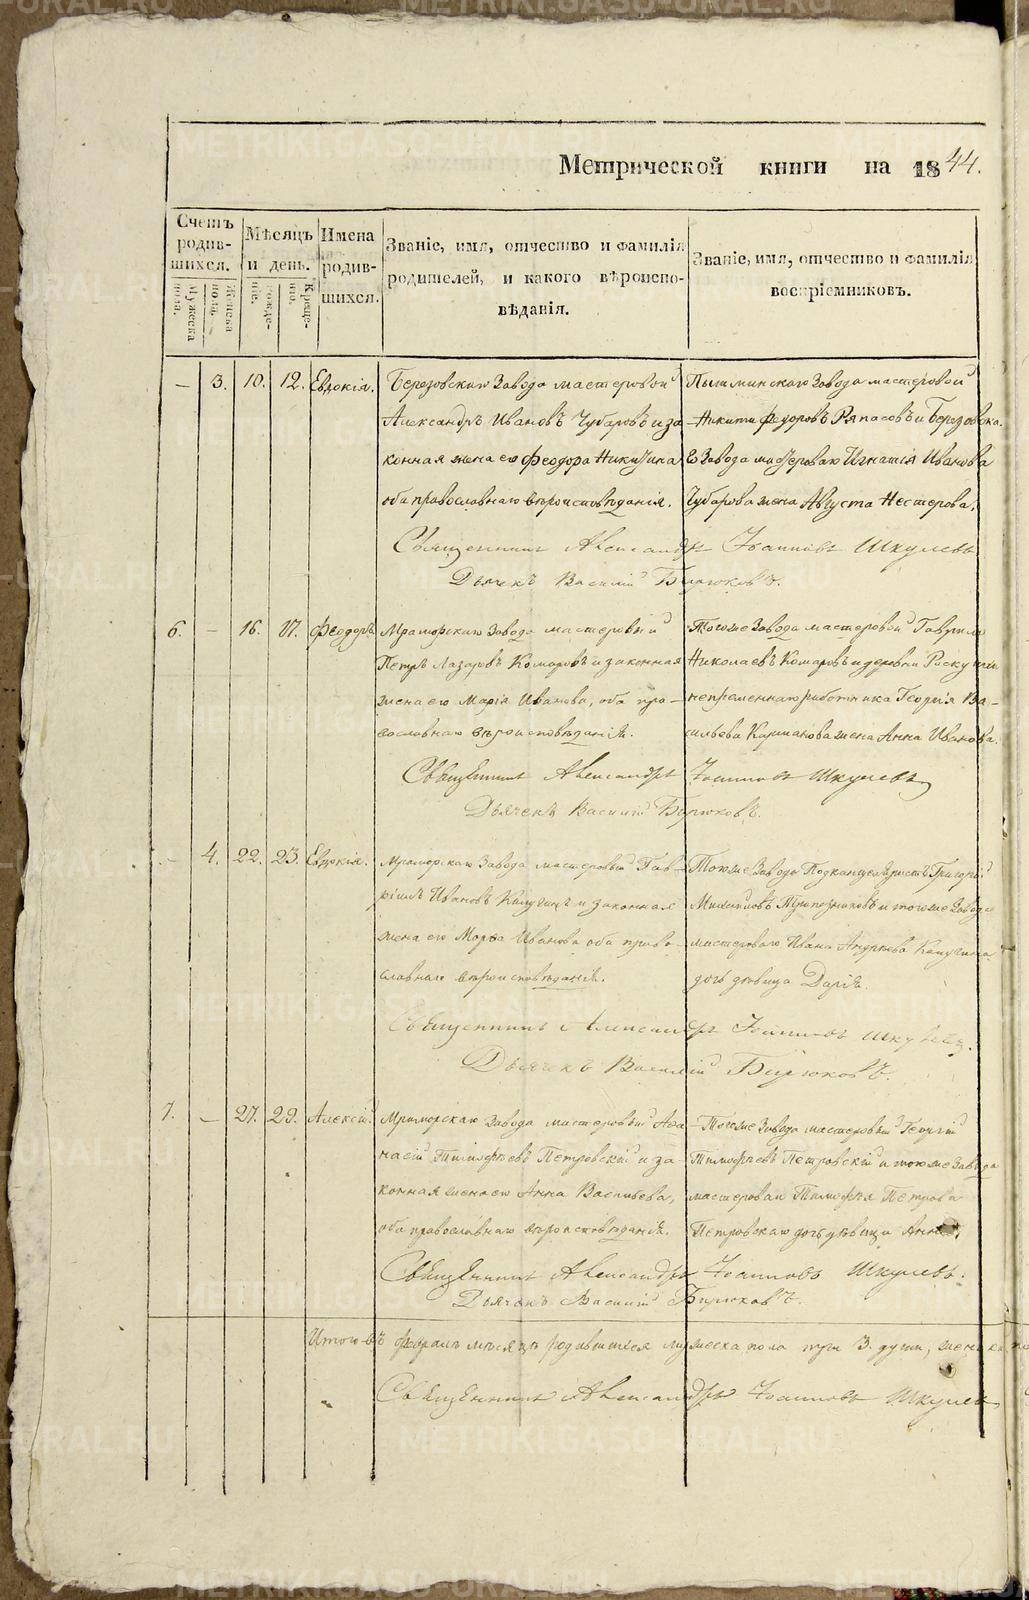 Метрической книги на 1844.
Счетъ родив-шихся.
Мужеска пола.
Женска пола.
Мѣсяцъ и день.
рожде-нія.
Креще-нія.
Имена родив-шихся.
Званіе, имя, отчество и фамилія
родителей, и какого вѣроиспо-
вѣданія.
Званіе, имя, отчество и фамилія
воспріемниковъ.
— 3. 10. 12. Евдокія.
Березовскаго Завода мастеровой
Александръ Ивановъ Чубаровъ и за
конная жена его Феодора Никитина
оба православнаго вѣроисповѣданія.
Пышминскаго Завода мастеровой
Никита Федоровъ Ряпасовъ и Березовска
го Завода мастероваго Игнатія Иванова
Чубарова жена Августа Нестерова.
Священникъ Александръ Іоанновъ Шкулевъ
Дьячекъ Василій Бирюковъ.
6. — 16. 17. Феодоръ
Мраморскаго Завода мастеровый
Петръ Лазаревъ Комаровъ и законная
жена его Марія Иванова, оба пра-
вославнаго вѣроисповѣданія.
Тогоже Завода мастеровой Гаврила
Николаевъ Комаровъ и деревни
непременнаго работника Георгія Ва-
сильева жена Анна Иванова.
Священникъ Александръ Іоанновъ Шкулевъ
Дьячекъ Василій Бирюковъ.
— 4. 22. 23. Евдокія.
Мраморскаго Завода мастеровый Гав-
ріилъ Ивановъ и законная
жена его Марѳа Иванова оба право-
славнаго вѣроисповѣданія.
Тогоже Завода Подканцеляристъ Григорій
Михайловъ Трапезниковъ и тогоже Завода
мастероваго Ивана Андреева
дочь дѣвица Дарія.
Священникъ Александръ Іоанновъ Шкулевъ.
Дьячекъ Василій Бирюковъ.
7. — 27. 29. Алексій.
Мраморскаго Завода мастеровый Аѳа-
насій Тимофѣевъ Петровскій и за-
конная жена его Анна Васильева,
оба православнаго вѣроисповѣданія.
Тогоже Завода мастеровый Георгій
Тимофѣевъ Петровскій и тогоже Завода
мастероваго Тимофѣя Петрова
Петровскаго дочь дѣвица Анна.
Священникъ Александръ Іоанновъ Шкулевъ.
Дьячекъ Василій Бирюковъ.
Итого въ Февралѣ мѣсяцѣ родившихся мужеска пола три 3. души, женска по
Священникъ Александръ Іоанновъ Шкулевъ
METRIKI.GASO-URAL.RU